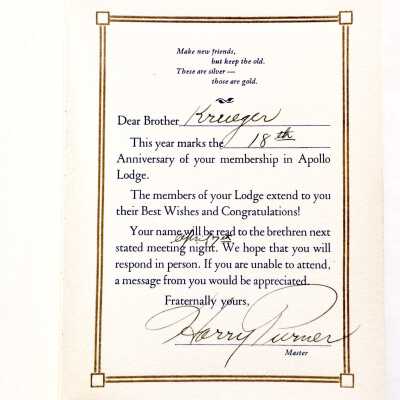 Make new friends,
but keep the old.
These are silver —
those are gold.
Dear Brother Krueger
This year marks the 18th
Anniversary of your membership in Apollo
Lodge.
The members of your Lodge extend to you
their Best Wishes and Congratulations!
Your name will be read to the brethren next
April 17th
stated meeting night. We hope that you will
respond in person. If you are unable to attend,
a message from you would be appreciated.
Fraternally yours,
Harry Purner
Master